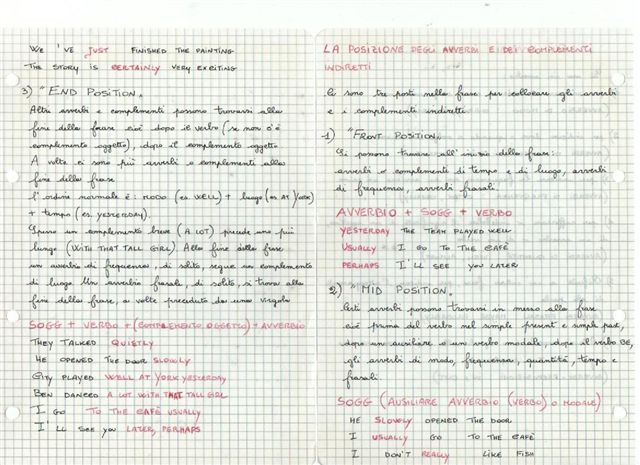 WE 'VE JUST FINISHED THE PAINTING
THE STORY IS CERTAINLY VERY EXCITING
3) "END POSITION"
Altri avverbi e complementi possono trovarsi alla
fine della frase cioè dopo il verbo (se non c'è
complemento oggetto), dopo il complemento oggetto
A volte ci sono più avverbi o complementi alla
fine della frase
l'ordine normale è: MODO (es. WELL) + luogo (es AT YORK)
+ tempo (es. YESTERDAY).
Spesso un complemento breve (A LOT) precede uno più
lungo (WITH THAT TALL GIRL) Alla fine della frase
un avverbio di frequenza, di solito, segue un complemento
di luogo Un avverbio frasale, di solito, si trova alla
fine della frase, a volte preceduto da una virgola
SOGG + VERBO + (COMPLEMENTO OGGETTO) + AVVERBIO
THEY TALKED QUIETLY
HE OPENED THE DOOR SLOWLY
GUY PLAYED WELL AT YORK YESTERDAY
BEN DANCED A LOT WITH THAT TALL GIRL
I GO TO THE CAFÈ USUALLY
I'LL SEE YOU LATER, PERHAPS
LA POSIZIONE DEGLI AVVERBI E DEI COMPLEMENTI
INDIRETTI
Ci sono tre posti nella frase per collocare gli avverbi
e i complementi indiretti
1) "FRONT POSITION"
Si possono trovare all'inizio della frase:
avverbi o complementi di tempo e di luogo, avverbi
di frequenza, avverbi frasali
AVVERBIO + SOGG + VERBO
YESTERDAY THE TEAM PLAYED WELL
USUALLY I GO TO THE CAFÈ
PERHAPS I'LL SEE YOU LATER
2) "MID POSITION"
Certi avverbi possono trovarsi in mezzo alla frase
cioè prima del verbo nel simple present e simple past,
dopo un ausiliare o un verbo modale, dopo il verbo BE,
gli avverbi di modo, frequenza, quantità, tempo e
frasali
SOGG (AUSILIARE AVVERBIO (VERBO) O MODALE)
HE SLOWLY OPENED THE DOOR
I USUALLY GO TO THE CAFÈ
I DON'T REALLY LIKE FISH